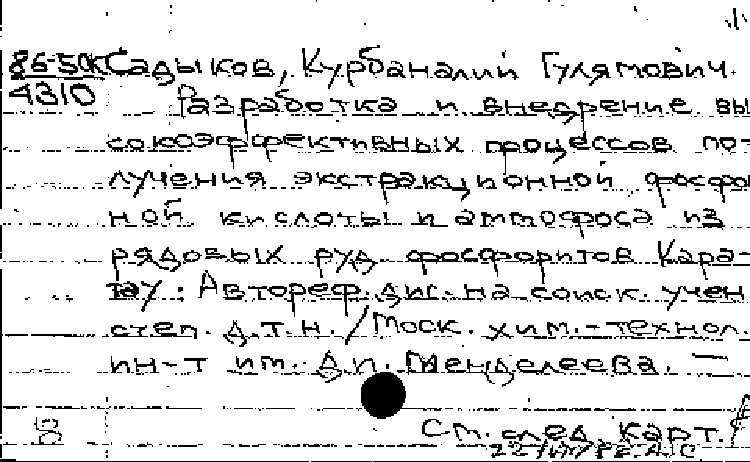 86-50К Садыков, Курбаналий Гулямович.
4310 Разработка и внедрение вы-
сокоэффективных процессов по-
лучения экстракционной фосфор-
ной кислоты и аммофоса из
рядовых руд фосфоритов Кара-
тау: Автореф. дис. на соиск. учен.
степ. д.т.н. / Моск. хим.-технол.
ин-т им. Д.И. Менделеева. —
См. след. карт.